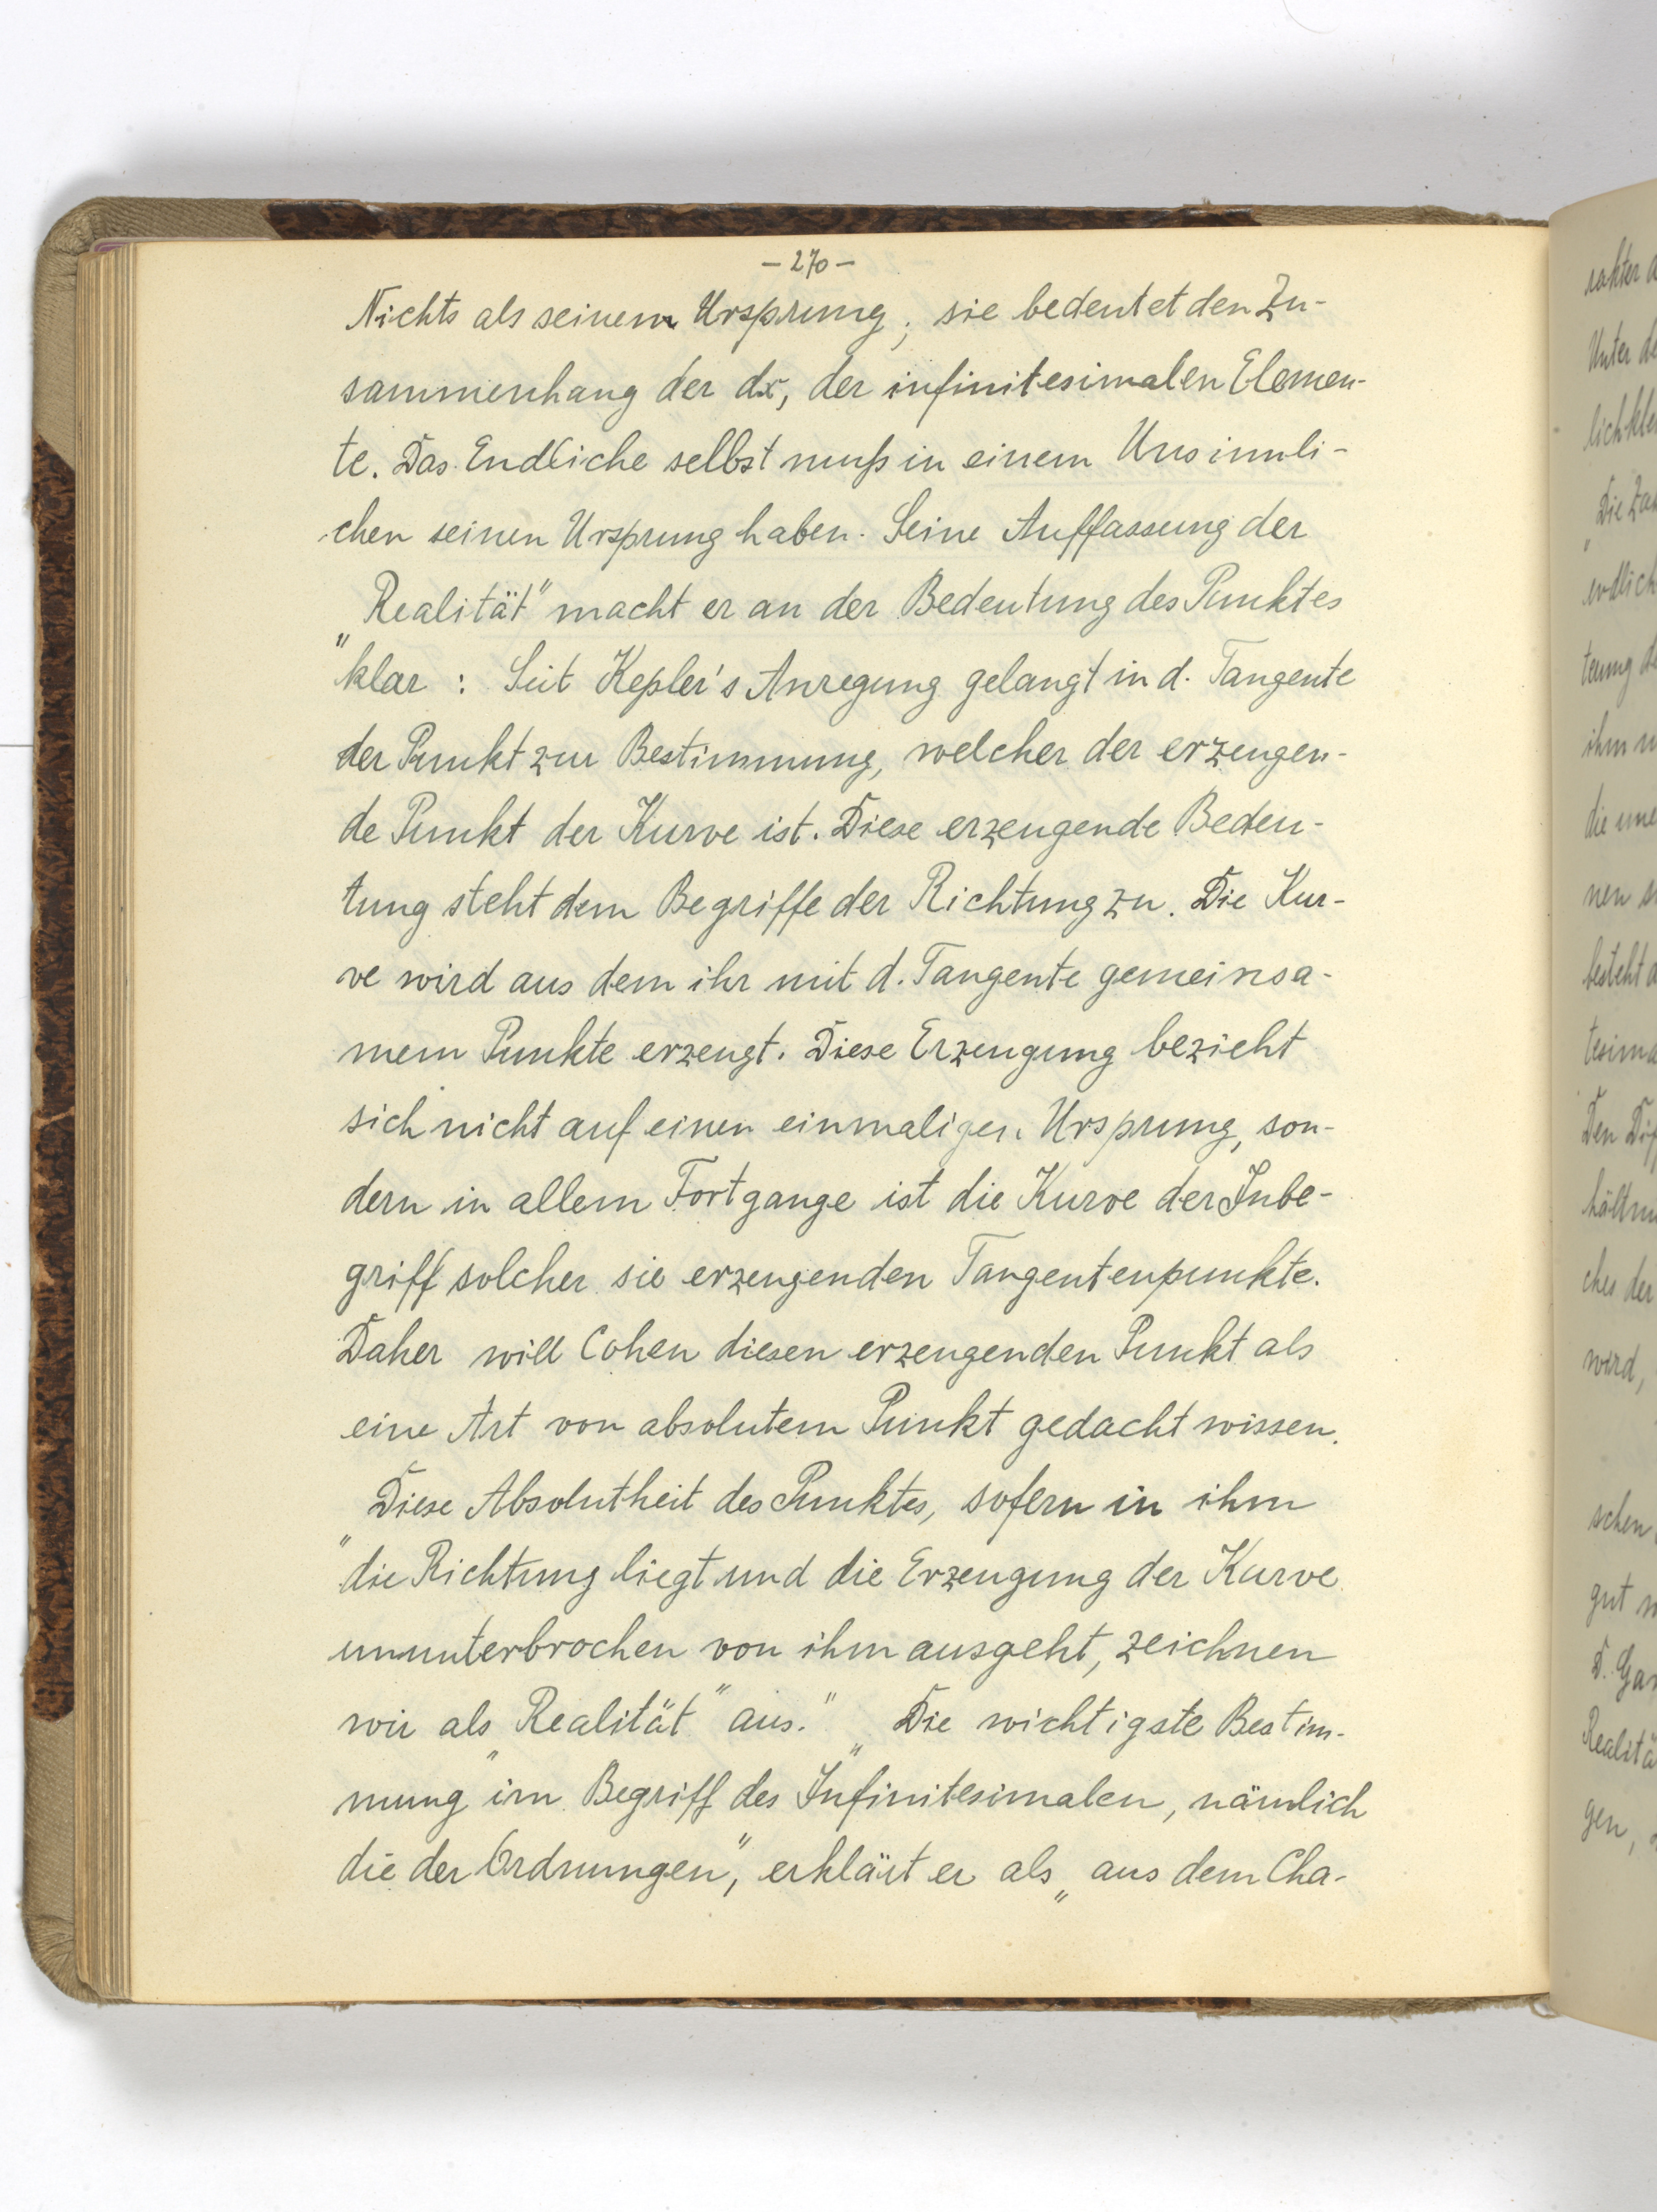 - 270 -
Nichts als seinem Ursprung; sie bedeutet den Zu-
sammenhang der dx, der infinitesimalen Elemen-
te. Das Endliche selbst muß in einem Unsinnli-
chen seinen Ursprung haben. Seine Auffassung der
„Realität" macht er an der Bedeutung des Punktes
klar: „Seit Kepler's Anregung gelangt in d. Tangente
der Punkt zur Bestimmung, welcher der erzeugen-
de Punkt der Kurve ist. Diese erzeugende Bedeu-
tung steht dem Begriffe der Richtung zu. Die Kur-
ve wird aus dem ihr mit d. Tangente gemeinsa-
mem Punkte erzeugt. Diese Erzeugung bezieht
sich nicht auf einen einmaligen Ursprung, son-
dern in allem Fortgange ist die Kurve der Inbe-
griff solcher sie erzeugenden Tangentenpunkte.
Daher will Cohen diesen erzeugenden Punkt als
eine Art von absolutem Punkt gedacht wissen.
„Diese Absolutheit des Punktes, sofern in ihm
die Richtung liegt und die Erzeugung der Kurve
ununterbrochen von ihm ausgeht, zeichnen
wir als „Realität" aus." „Die wichtigste Bestim-
mung im Begriff des Infinitesimalen, nämlich
die der Ordnungen", erklärt er als „aus dem Cha-